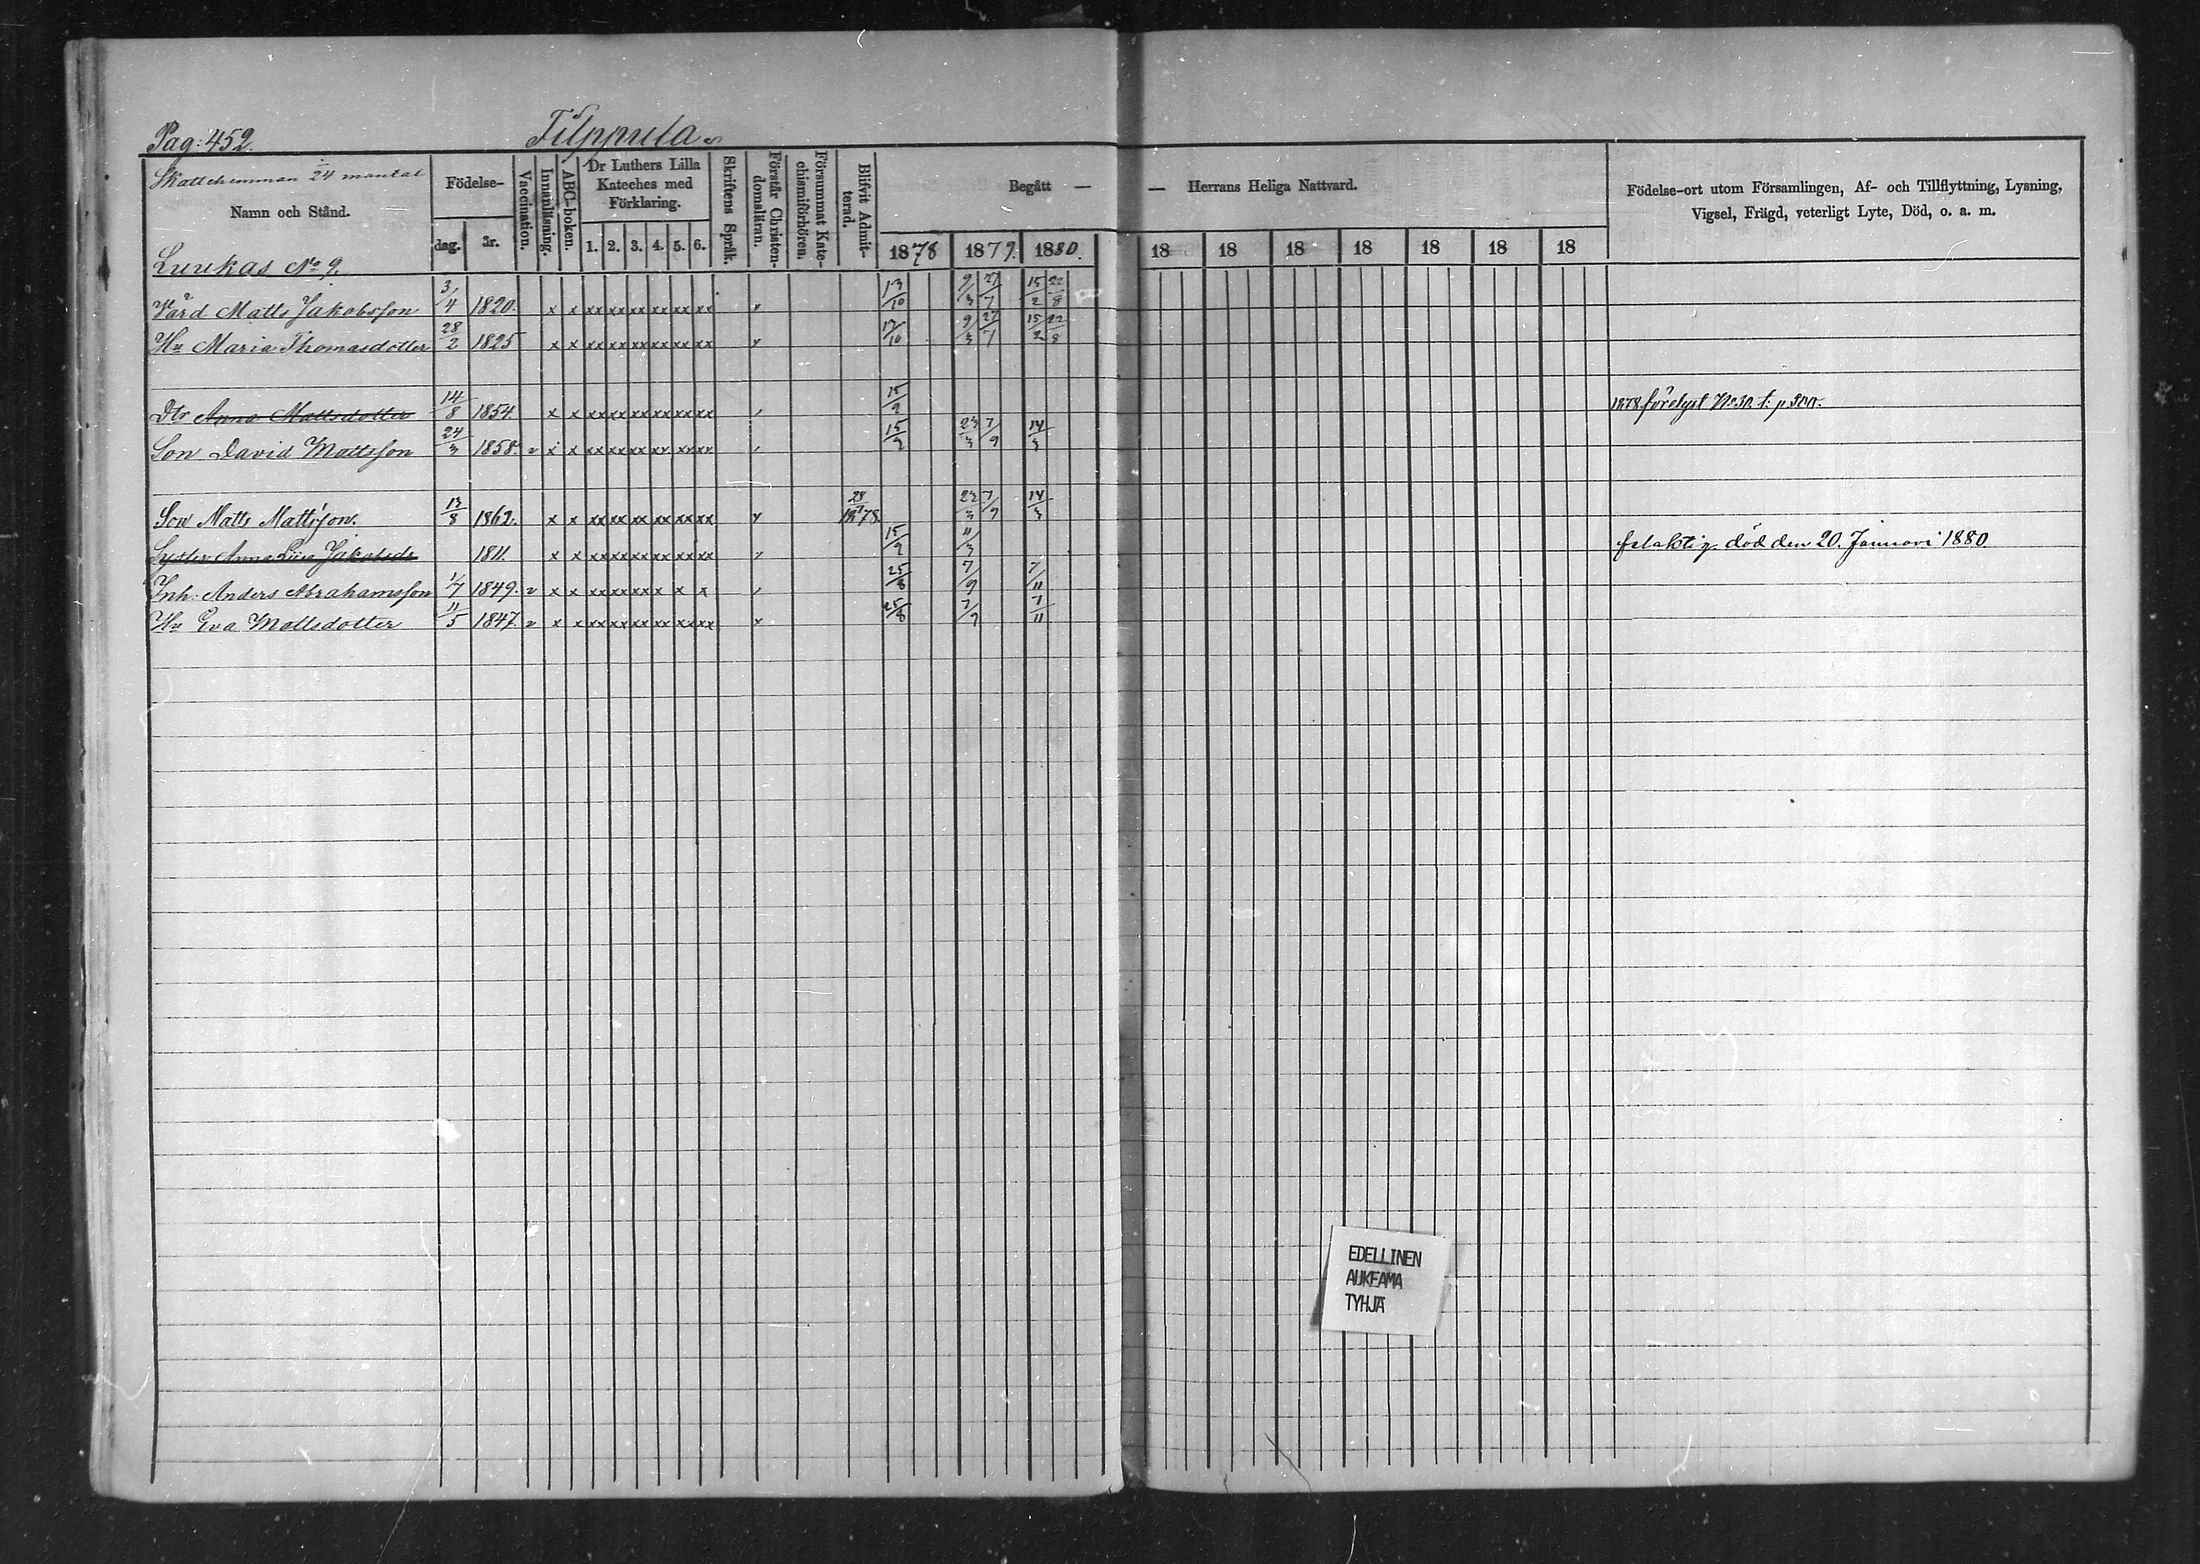 Pag: 452. Filppula
Skattehemman 5/24 mantal
Namn och Stånd.
Födelse-
dag. år.
Vaccination.
Innanläsning.
ABC-boken.
Dr Luthers Lilla
Kateches med
Förklaring.
1. 2. 3. 4. 5. 6.
Skriftens Språk.
Förstår Christen-
domsläran.
Försummat Kate-
chismiförhören.
Blifvit Admit-
terad.
Begått — — Herrans Heliga Nattvard.
1878 1879. 1880. 18 18 18 18 18 18 18
Födelse-ort utom Församlingen, Af- och Tillflyttning, Lysning,
Vigsel, Frägd, veterligt Lyte, Död, o. a. m.
Luukas No 9.
Värd Matts Jakobsson 3/4 1820. x x xx xx xx xx xx xx 13/10 9/3 27/7 15/2 22/8
Hu Maria Thomasdotter 28/2 1825 x x xx xx xx xx xx xx 13/10 9/3 27/7 15/2 22/8
Dtr Anna Mattsdotter 14/8 1854 x x xx xx xx xx xx xx 15/2 1878 förelyst
Son David Mattsson 24/3 1858. v x x xx xx xx xx xx xx 15/2 23/3 7/9 14/3
Son Matts Mattsson. 13/8 1862. x x xx xx xx xx xx xx 23/3 7/9 14/3
Syster Anna Lisa Jakobsdr 1811. x x xx xx xx xx xx xx 15/2 11/3 felaktig. död den 20. Januari 1880.
Inh: Anders Abrahamsson 1/7 1849. v x x xx xx xx x x x 25/8 7/9 7/11
Hu Eva Mattsdotter 11/5 1847. v x x xx xx xx xx xx xx 25/8 7/9 7/11
EDELLINEN
AUKEAMA
TYHJÄ